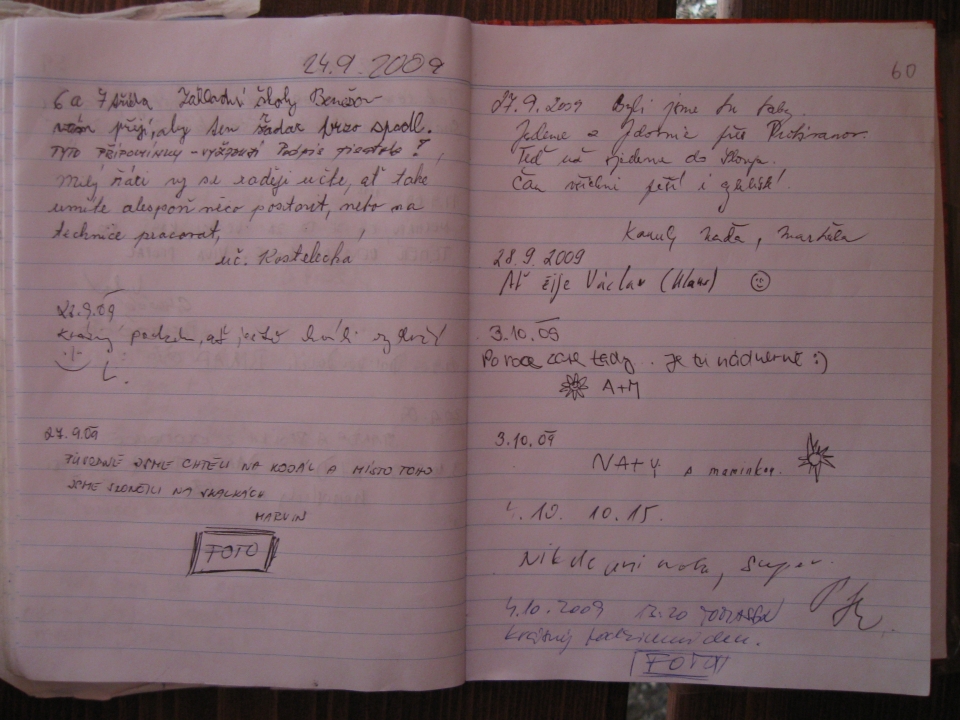 24.9.2009
6 a 7 třída Základní školy Benešov
přejí, aby sen řádar brzo spadl.
TYTO PŘIPOMÍNKY - VYŽADUJÍ
Milý žáci vy se raději učte, ať také
umíte alespoň něco postavit, nebo na
technice pracovat,
uč. Kostelecká
28.9.09
Krásný podzim, ať ještě chvíli vydrží
L.
27.9.09
PŮVODNĚ JSME CHTĚLI NA KODÁL A MÍSTO TOHO
JSME SKONČILI NA SKALKÁCH
MARVIN
FOTO
60
27.9.2009 Byli jsme tu taky
Jedeme z přes Protivanov.
Teď už jedeme do Sloupu.
Čau všichni i
Naďa, Markéta
28.9.2009
Ať žije Václav (Klaus)
3.10.09
Po roce zase tady.. je tu nádherně :)
A+M
3.10.09
NA+Y a maminka.
4.10. 10.15.
Nikde ani noha, super.
4.10.2009 12:20
Krásný podzimní den.
FOTO